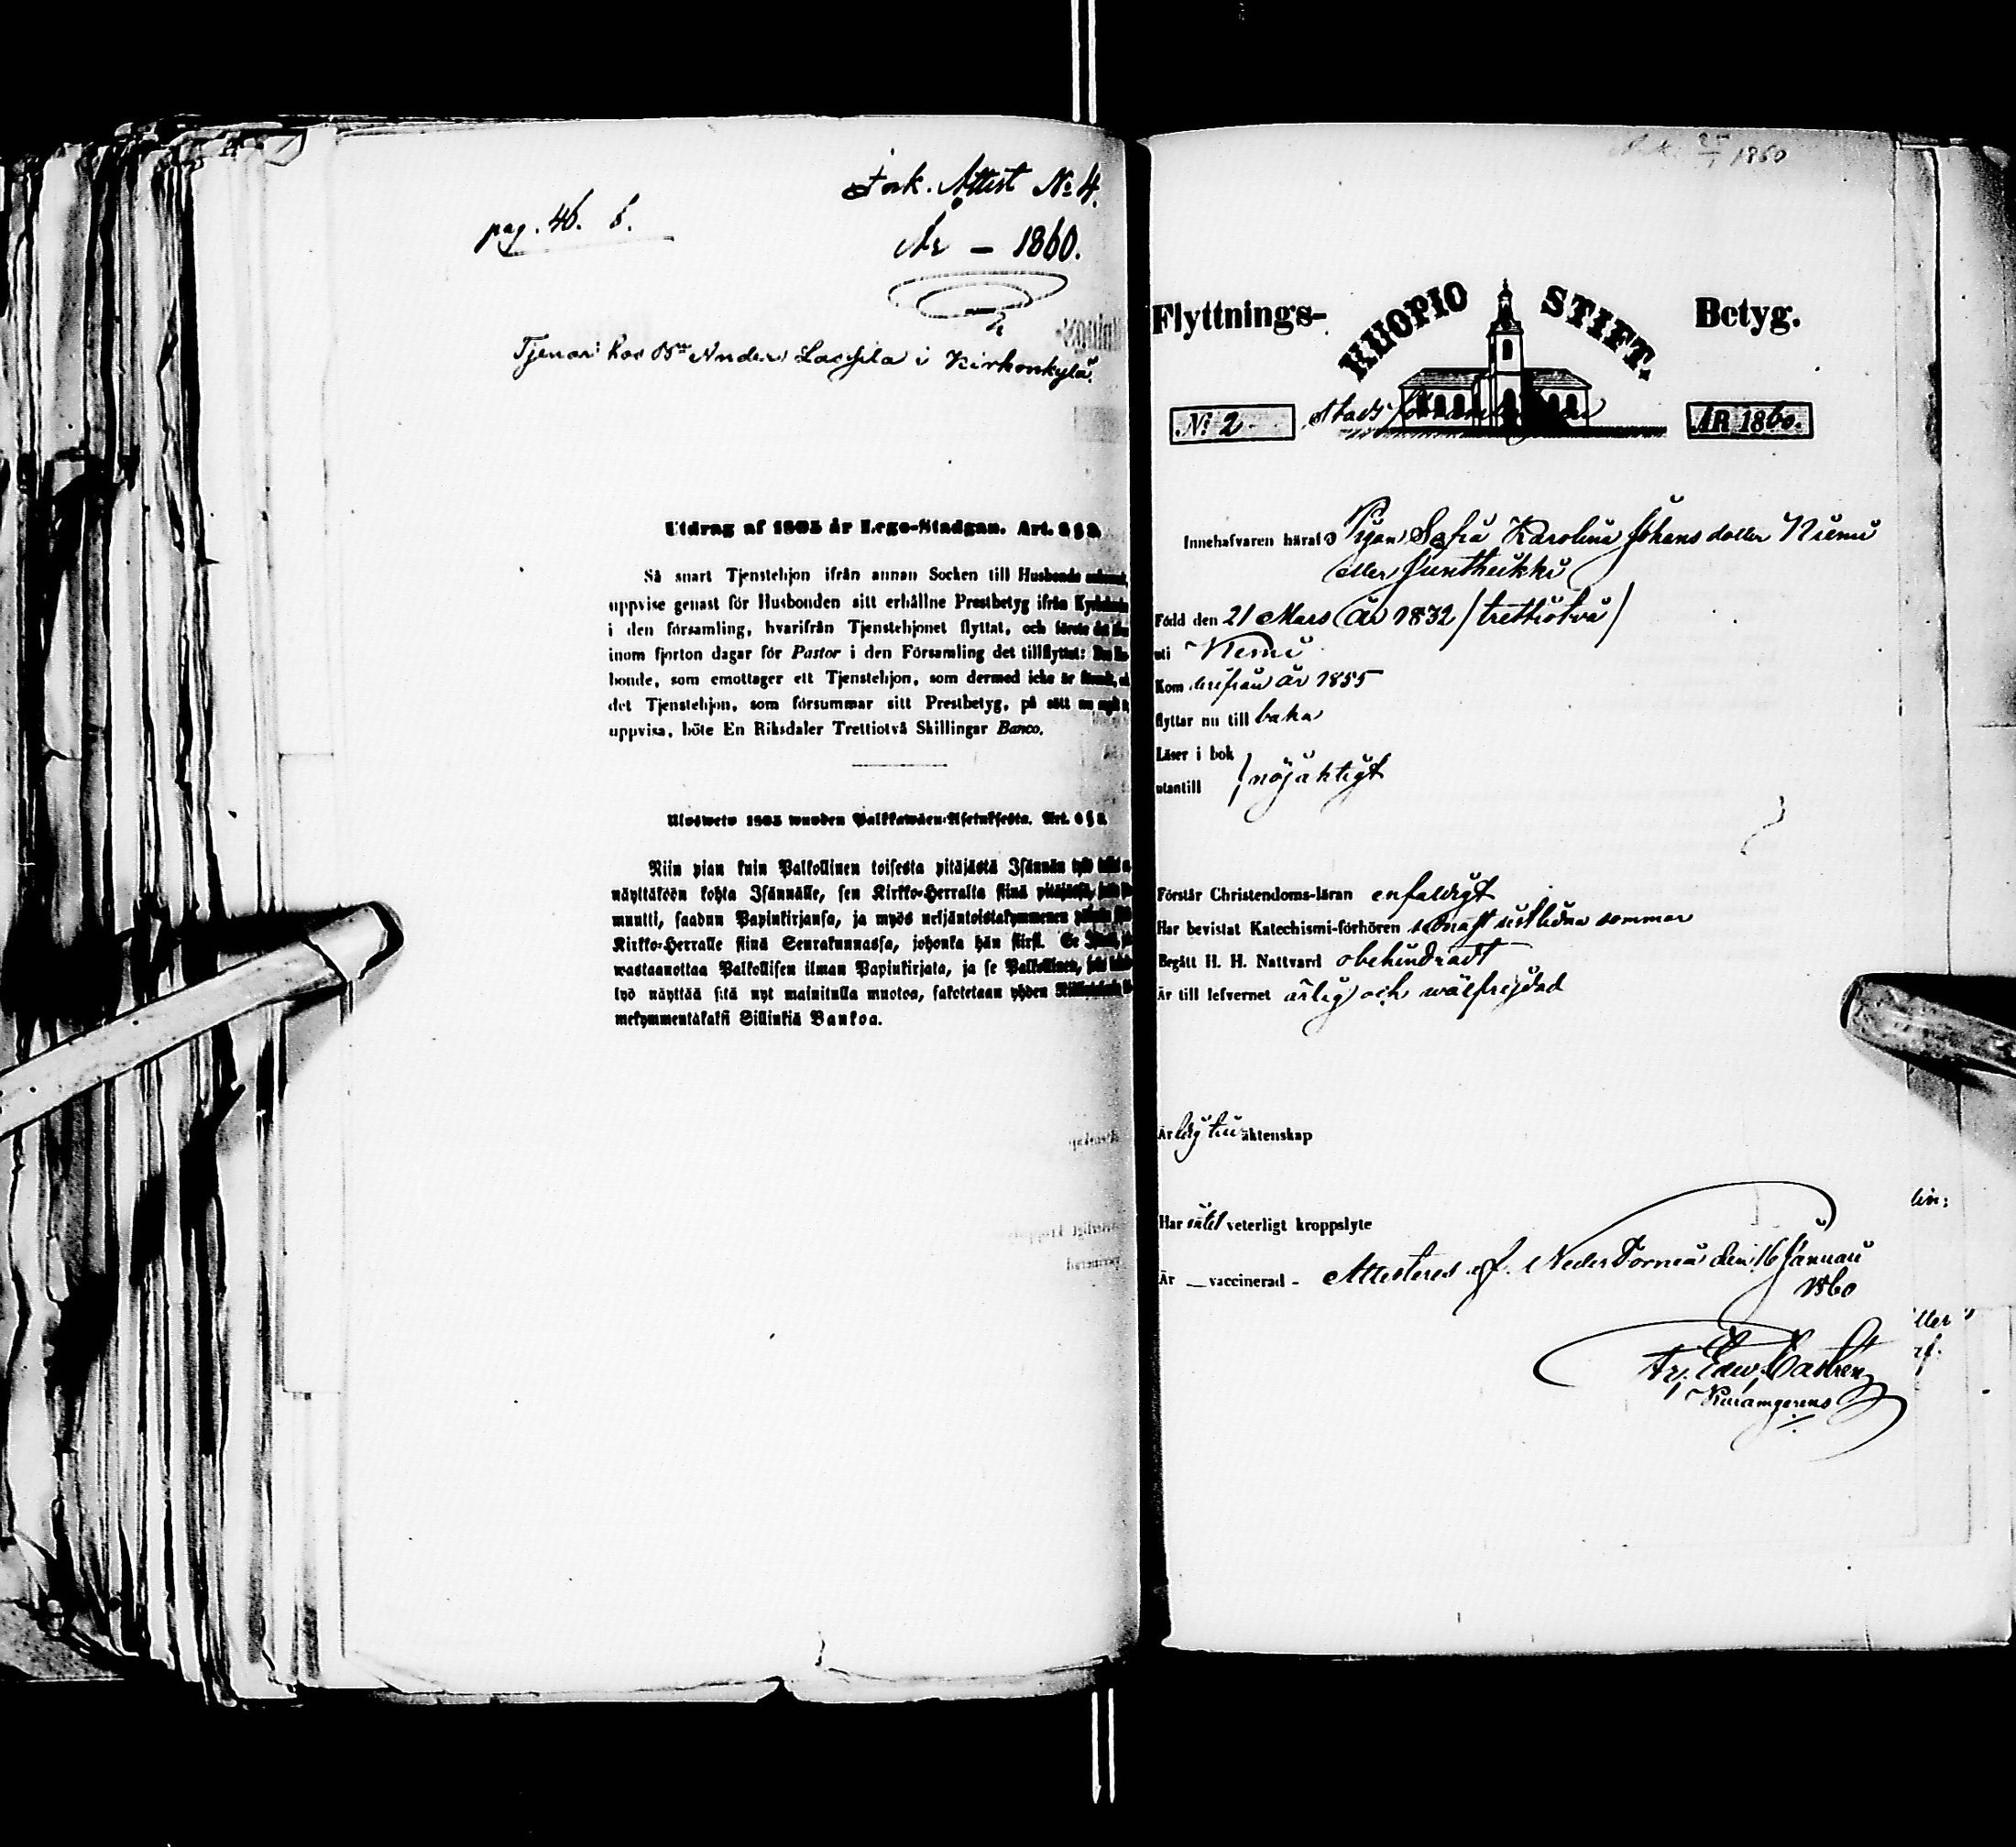 pag. 46. b.
Ink. Attest No 4.
År — 1860.
Tjenar hos Bn Anders Lassila i Kirkonkylä.
Utdrag af 1805 år Lego-Stadgan. Art. 6 § 3.
Så snart Tjenstehjon ifrån annan Socken till Husbonde
uppvise genast för Husbonden sitt erhållne Prestbetyg ifrån
i den församling, hvarifrån Tjenstehjonet flyttat, och
inom fjorton dagar för Pastor i den Församling det tillflyttat:
bonde, som emottager ett Tjenstehjon, som dermed icke är
det Tjenstehjon, som försummar sitt Prestbetyg, på sätt
uppvisa, böte En Riksdaler Trettiotvå Skillingar Banco.
Ulosweto 1805 wuoden Palkkawäen-Asetuksesta. Art. 6 §
Niin pian kuin Palkollinen toisesta pitäjästä Isännän
näyttäköön kohta Isännälle, sen Kirkko-Herralta siinä
muutti, saadun Papinkirjansa, ja myös neljäntoistakymmenen
Kirkko-Herralle siinä Seurakunnassa, johonka hän siirsi. Se
wastaanottaa Palkollisen ilman Papinkirjata, ja se Palkollinen,
lyö näyttää sitä nyt mainitulla muotoa, sakotetaan yhden
mekymmentäkaksi Sillinkiä Bankoa.
1860
Flyttnings- KUOPIO STIFT. Betyg.
No 2 Stads församlingen ÅR 1860.
Innehafvaren häraf Pigan Sofia Karolina Johans dotter Niemi
eller Juntheikki
Född den 21 Mars år 1832 / trettiotvå /
uti Kemi
Kom derifrån år 1855
flyttar nu till baka
Läser i bok
utantill nöjaktigt
Förstår Christendoms-läran enfaldigt
Har bevistat Katechismi-förhören sednast sistlidna sommar
Begått H. H. Nattvard obehindradt
Är till lefvernet ärlig och wälfrejdad
Är ledig till äktenskap
Har intet veterligt kroppslyte
Är — vaccinerad - Attesteras af. Neder Torneå den 16 Januari
1860
Edw. Castrén